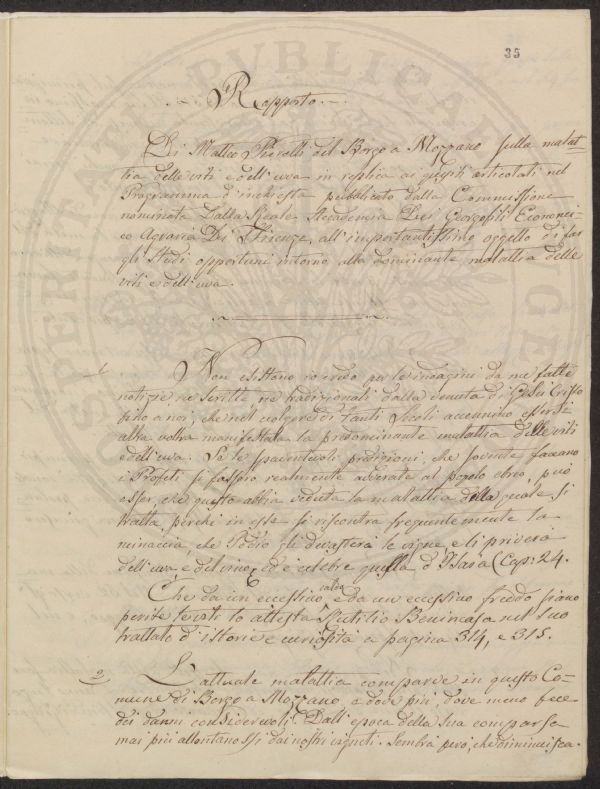 35
Rapporto
Di Matteo Pierotti del Borgo a Mozzano sulla malat-
tia delle viti e dell'uva in replica ai quesiti articolati nel
Programma d'inchiesta pubblicato dalla Commissione
nominata Dalla Reale Accademia Dei Georgofili Economi-
co Agraria Di Firenze, all'importantissimo oggetto di far
gli Studi opportuni intorno alla dominante malattia delle
viti e dell'uva.
1.
Non esistono io credo per le indagini da me fatte
notizie ne scritte, ne tradizionali dalla venuta di Gesù Cristo
fino a noi, che nel volgere di tanti Secoli accennino essersi
altra volta manifestata la predominante malattia delle viti
e dell'uva. Se le spaventevoli predizioni, che sovente facevano
i Profeti si fossero realmente avverate al popolo ebreo, può
esser, che questo abbia veduta la malattia della quale si
tratta, perchè in esse si riscontra frequentemente la
minaccia, che Iddio gli devasterà le vigne, e li priverà
dell'uva, e del vino; ed è celebre quella d'Isaia (Cap: 24.
Che da un eccessivo calor e da un eccessivo freddo siano
perite le viti lo attesta Rutilio Benincasa nel suo
trattato d'istorie e curiosità a pagina 314, e 315.
2.
L'attuale malattia comparve in questo Co-
mune di Borgo a Mozzano, e dove più, dove meno fece
dei danni considerevoli. Dall'epoca della sua comparsa
mai più allontanossi dai nostri vigneti. Sembra però, che diminuisca.
PUBLICAE